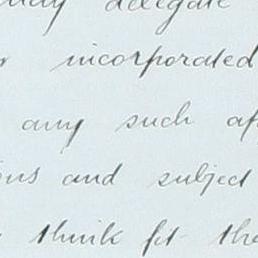 delegate
incorporated
any such
and subject
think fit